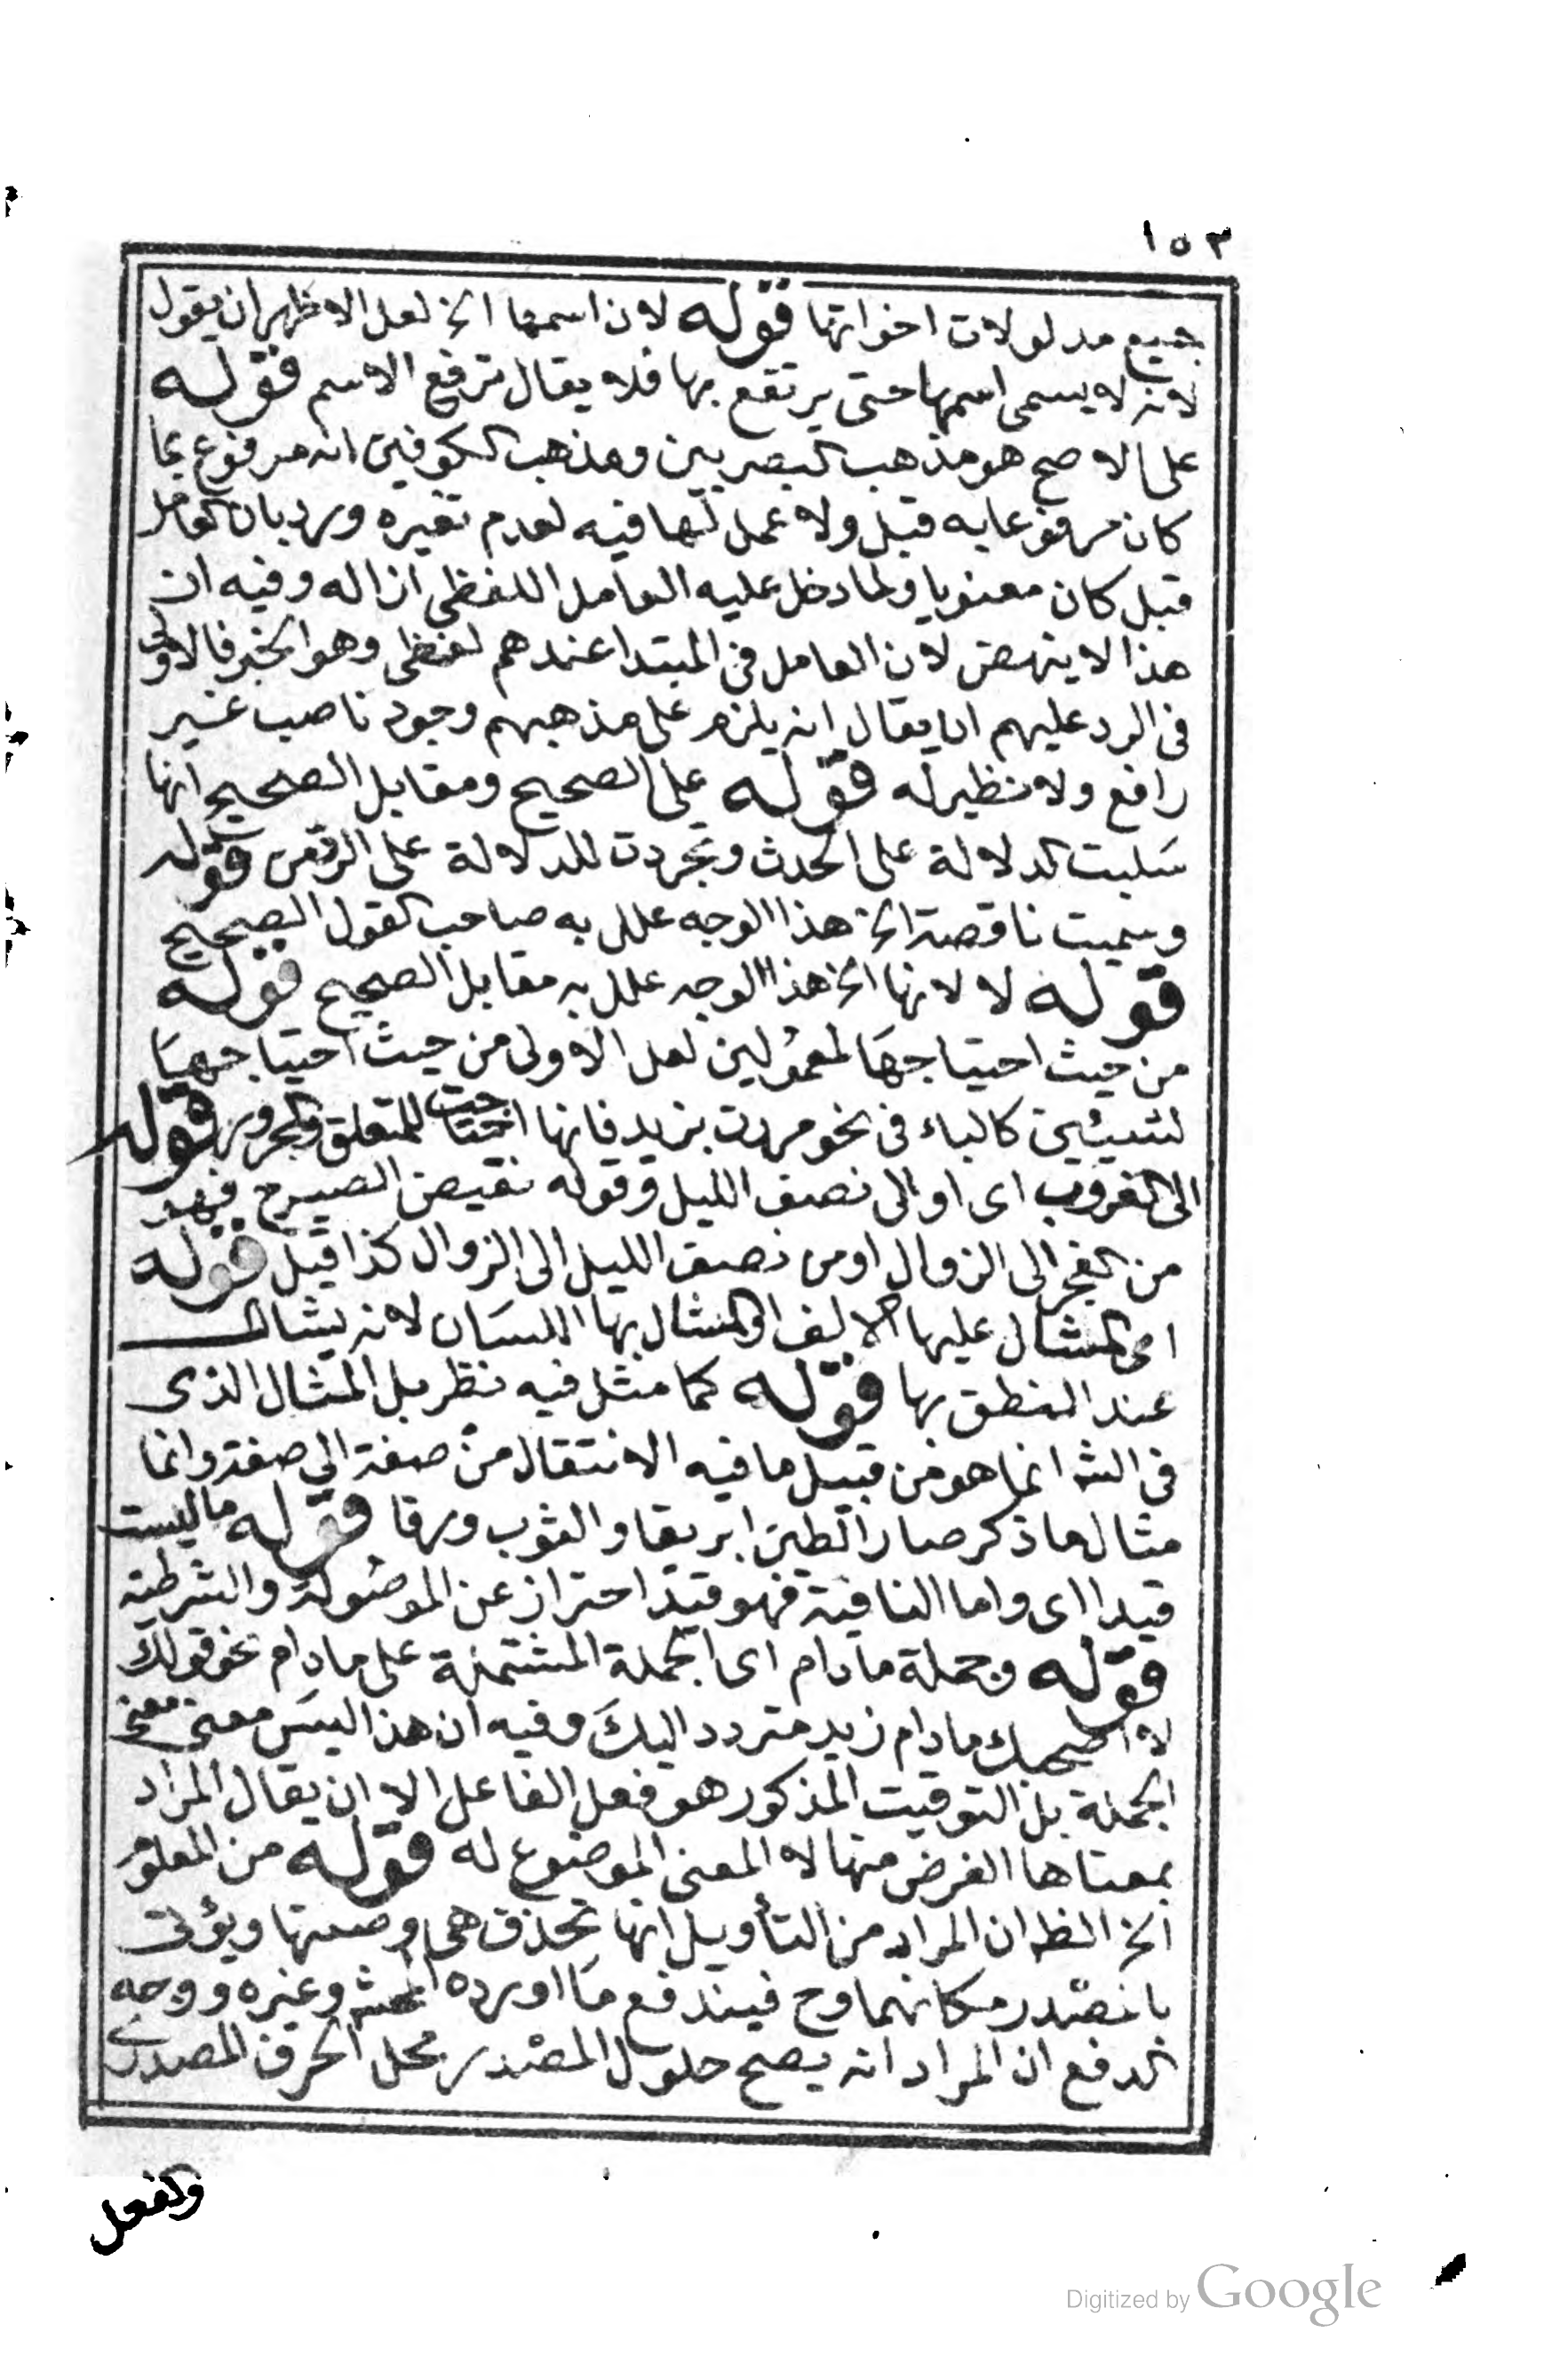 ١٥٣
جميع مدلولات اخواتها قوله لان اسمها الخ لعل الاظهر ان يقول
لانه لا يسمى اسمها حتى يرتفع بها فلا يقال ترفع الاسم قوله
على الاصح هو مذهب البصريين ومذهب الكوفيين انه مرفوع بما
كان مرفوعا به قبل ولا عمل لها فيه لعدم تغيره ورد بان العامل
قبل كان معنويا ولما دخل عليه العامل اللفظى ازاله وفيه ان
هذا لا ينهض لان العامل فى المبتدا عندهم لفظى وهو الخبر فالاولى
فى الرد عليهم ان يقال انه يلزم على مذهبهم وجود ناصب غير
رافع ولا نظير له قوله على الصحيح ومقابل الصحيح انها
سلبت الدلالة على الحدث وتجردت للدلالة على الزمن قوله
وسميت ناقصة الخ هذا الوجه علل به صاحب القول الصحيح
قوله لا لانها الخ هذا الوجه علل به مقابل الصحيح قوله
من حيث احتياجها لمعمولين لعل الاولى من حيث احتياجها
لشيئين كالباء فى نحو مررت بزيد فانها احتاجت للمتعلق والمجرور قوله
الى الغروب اى او الى نصف الليل وقوله نقيض الصبح فهو
من الفجر الى الزوال او من نصف الليل الى الزوال كذا قيل قوله
اى المشال عليها الالف او المشال بها اللسان لانه يشال
عند النطق بها قوله كما مثل فيه نظر بل المثال الذى
فى الشه انما هو من قبيل ما فيه الانتقال من صفة الى صفة وانما
مثال ما ذكر صار الطين ابريقا والثوب ورقا قوله ما ليست
قيدا اى واما النافية فهو قيد احتراز عن الموصولة والشرطية
قوله وجملة مادام اى الجملة المشتملة على مادام نحو قولك
لا اصحبك مادام زيد متردد اليك وفيه ان هذا ليس معنى معنى
الجملة بل التوقيت المذكور هو فعل الفاعل الا ان يقال المراد
بمعناها الغرض منها لا المعنى الموضوع له قوله من المعلوم
الخ الظ ان المراد من التأويل انها تحذف هى وصلتها ويؤتى
بالمصدر مكانهما وح فيندفع ما اورده المحشى وغيره ووجه
الدفع ان المراد انه يصح حلول المصدر محل الحرف المصدرى
والفعل
Digitized by Google